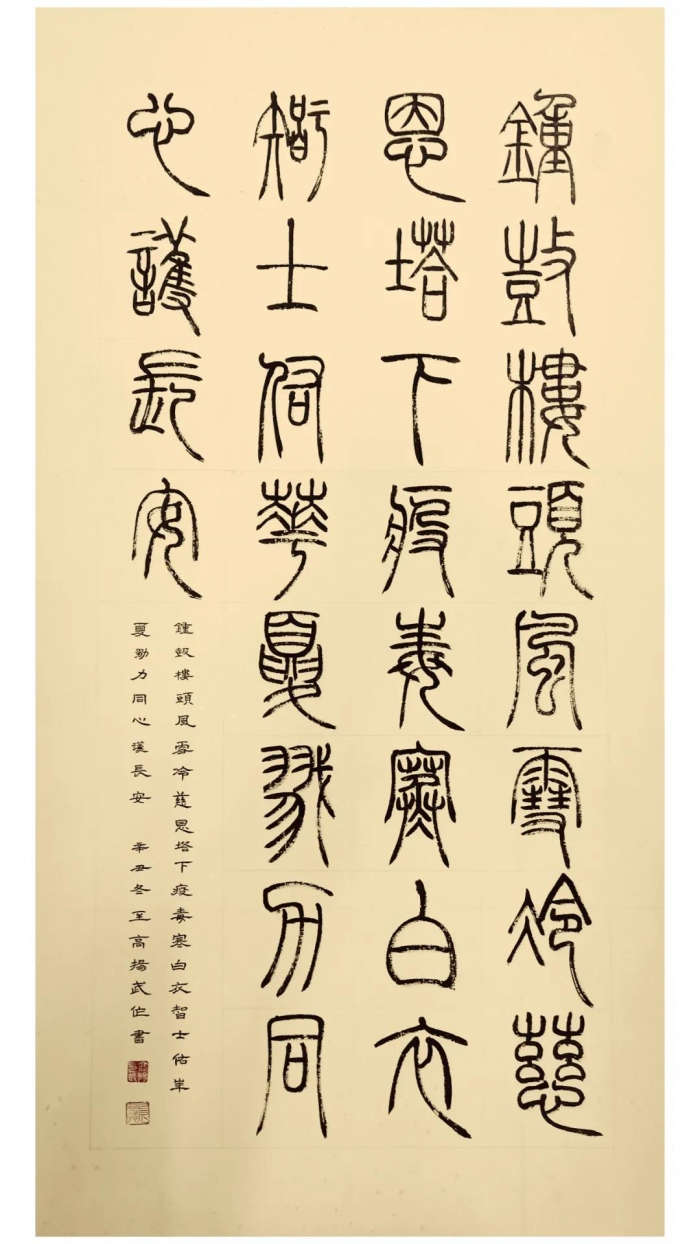 鍾鼓樓頭風雪冷慈
恩塔下疫毒寒白衣
智士佑華夏勠力同
心護長安
鍾鼓樓頭風雪冷慈恩塔下疫毒寒白衣智士佑華
夏勠力同心護長安 辛丑冬至高揚武作書